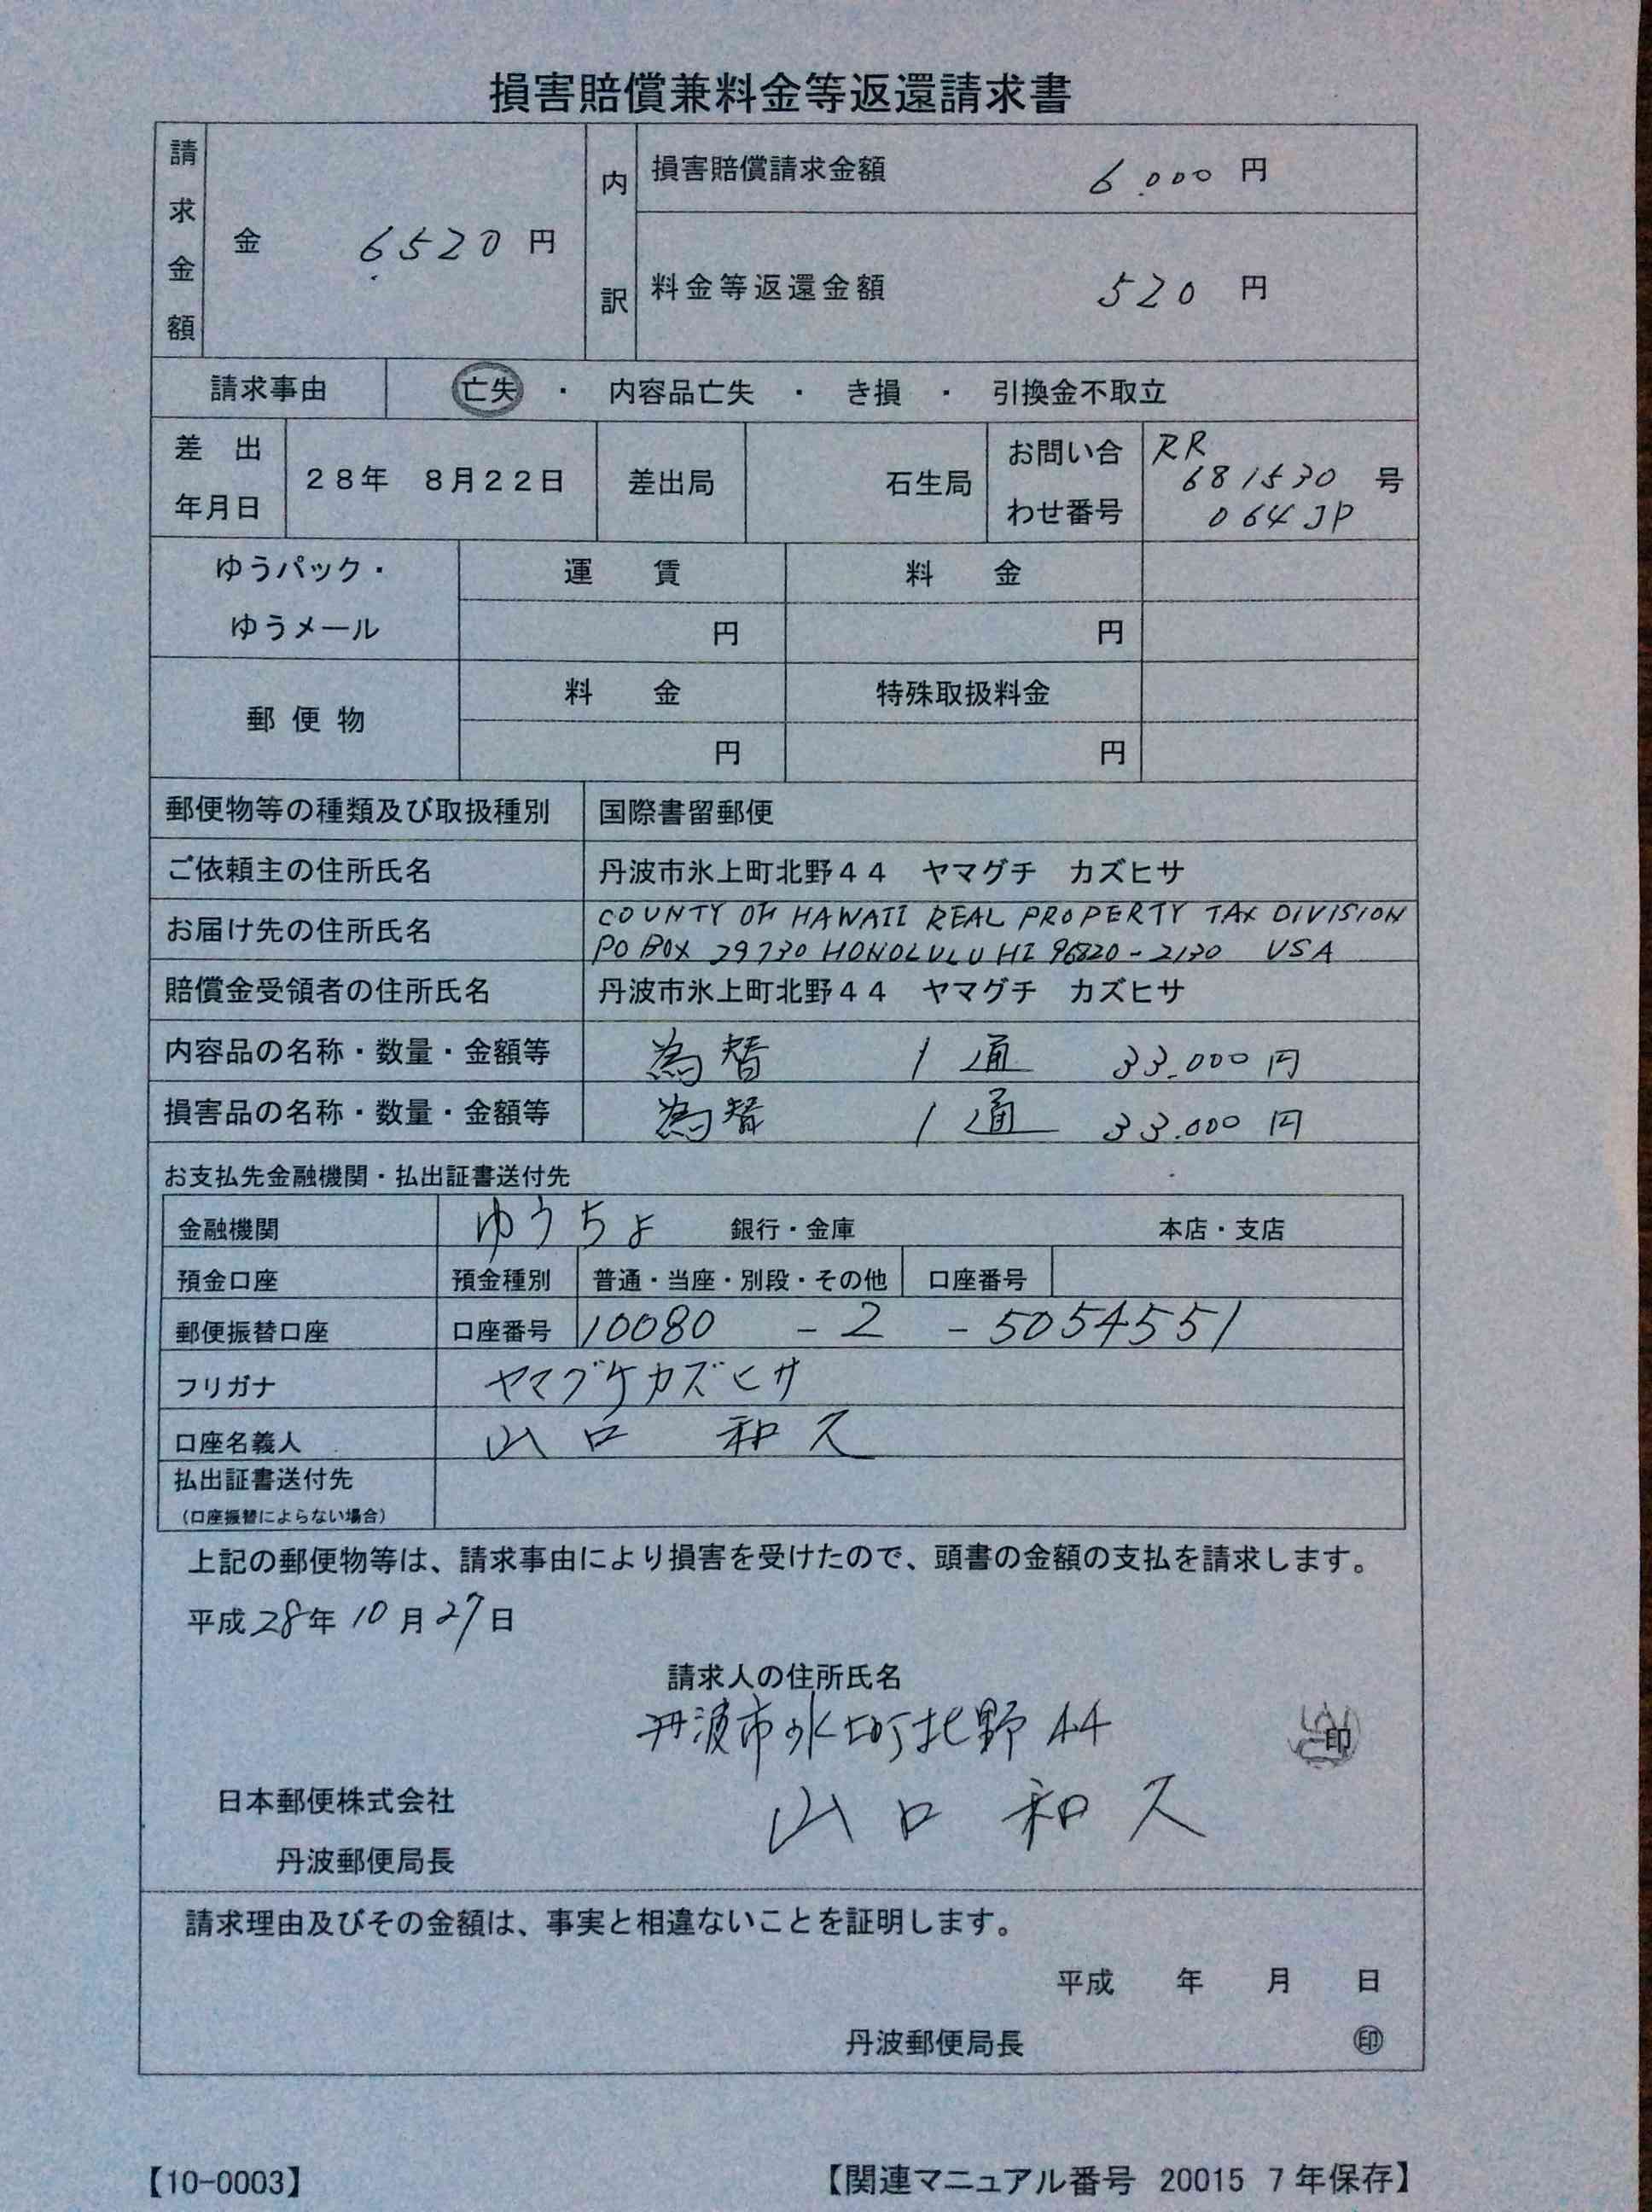 損害賠償兼料金等返還請求書
請求金額
金 6520 円
内訳
損害賠償請求金額 6.000 円
料金等返還金額 520 円
請求事由 亡失 ・ 内容品亡失 ・ き損 ・ 引換金不取立
差出年月日 28年 8月22日 差出局 石生局 お問い合わせ番号 RR 681530 064JP 号
ゆうパック・ゆうメール 運賃 料金
円 円
郵便物 料金 特殊取扱料金
円 円
郵便物等の種類及び取扱種別 国際書留郵便
ご依頼主の住所氏名 丹波市氷上町北野44 ヤマグチ カズヒサ
お届け先の住所氏名 COUNTY OF HAWAII REAL PROPERTY TAX DIVISION
PO BOX 29730 HONOLULU HI 96820-2130 USA
賠償金受領者の住所氏名 丹波市氷上町北野44 ヤマグチ カズヒサ
内容品の名称・数量・金額等 為替 1通 33.000円
損害品の名称・数量・金額等 為替 1通 33.000円
お支払先金融機関・払出証書送付先
金融機関 ゆうちょ 銀行・金庫 本店・支店
預金口座 預金種別 普通・当座・別段・その他 口座番号
郵便振替口座 口座番号 10080 - 2 - 5054551
フリガナ ヤマグチカズヒサ
口座名義人 山口 和久
払出証書送付先
(口座振替によらない場合)
上記の郵便物等は、請求事由により損害を受けたので、頭書の金額の支払を請求します。
平成28年10月27日
請求人の住所氏名
丹波市氷上町北野44
印
日本郵便株式会社
山口 和久
丹波郵便局長
請求理由及びその金額は、事実と相違ないことを証明します。
平成 年 月 日
丹波郵便局長 ㊞
【10-0003】 【関連マニュアル番号 20015 7年保存】